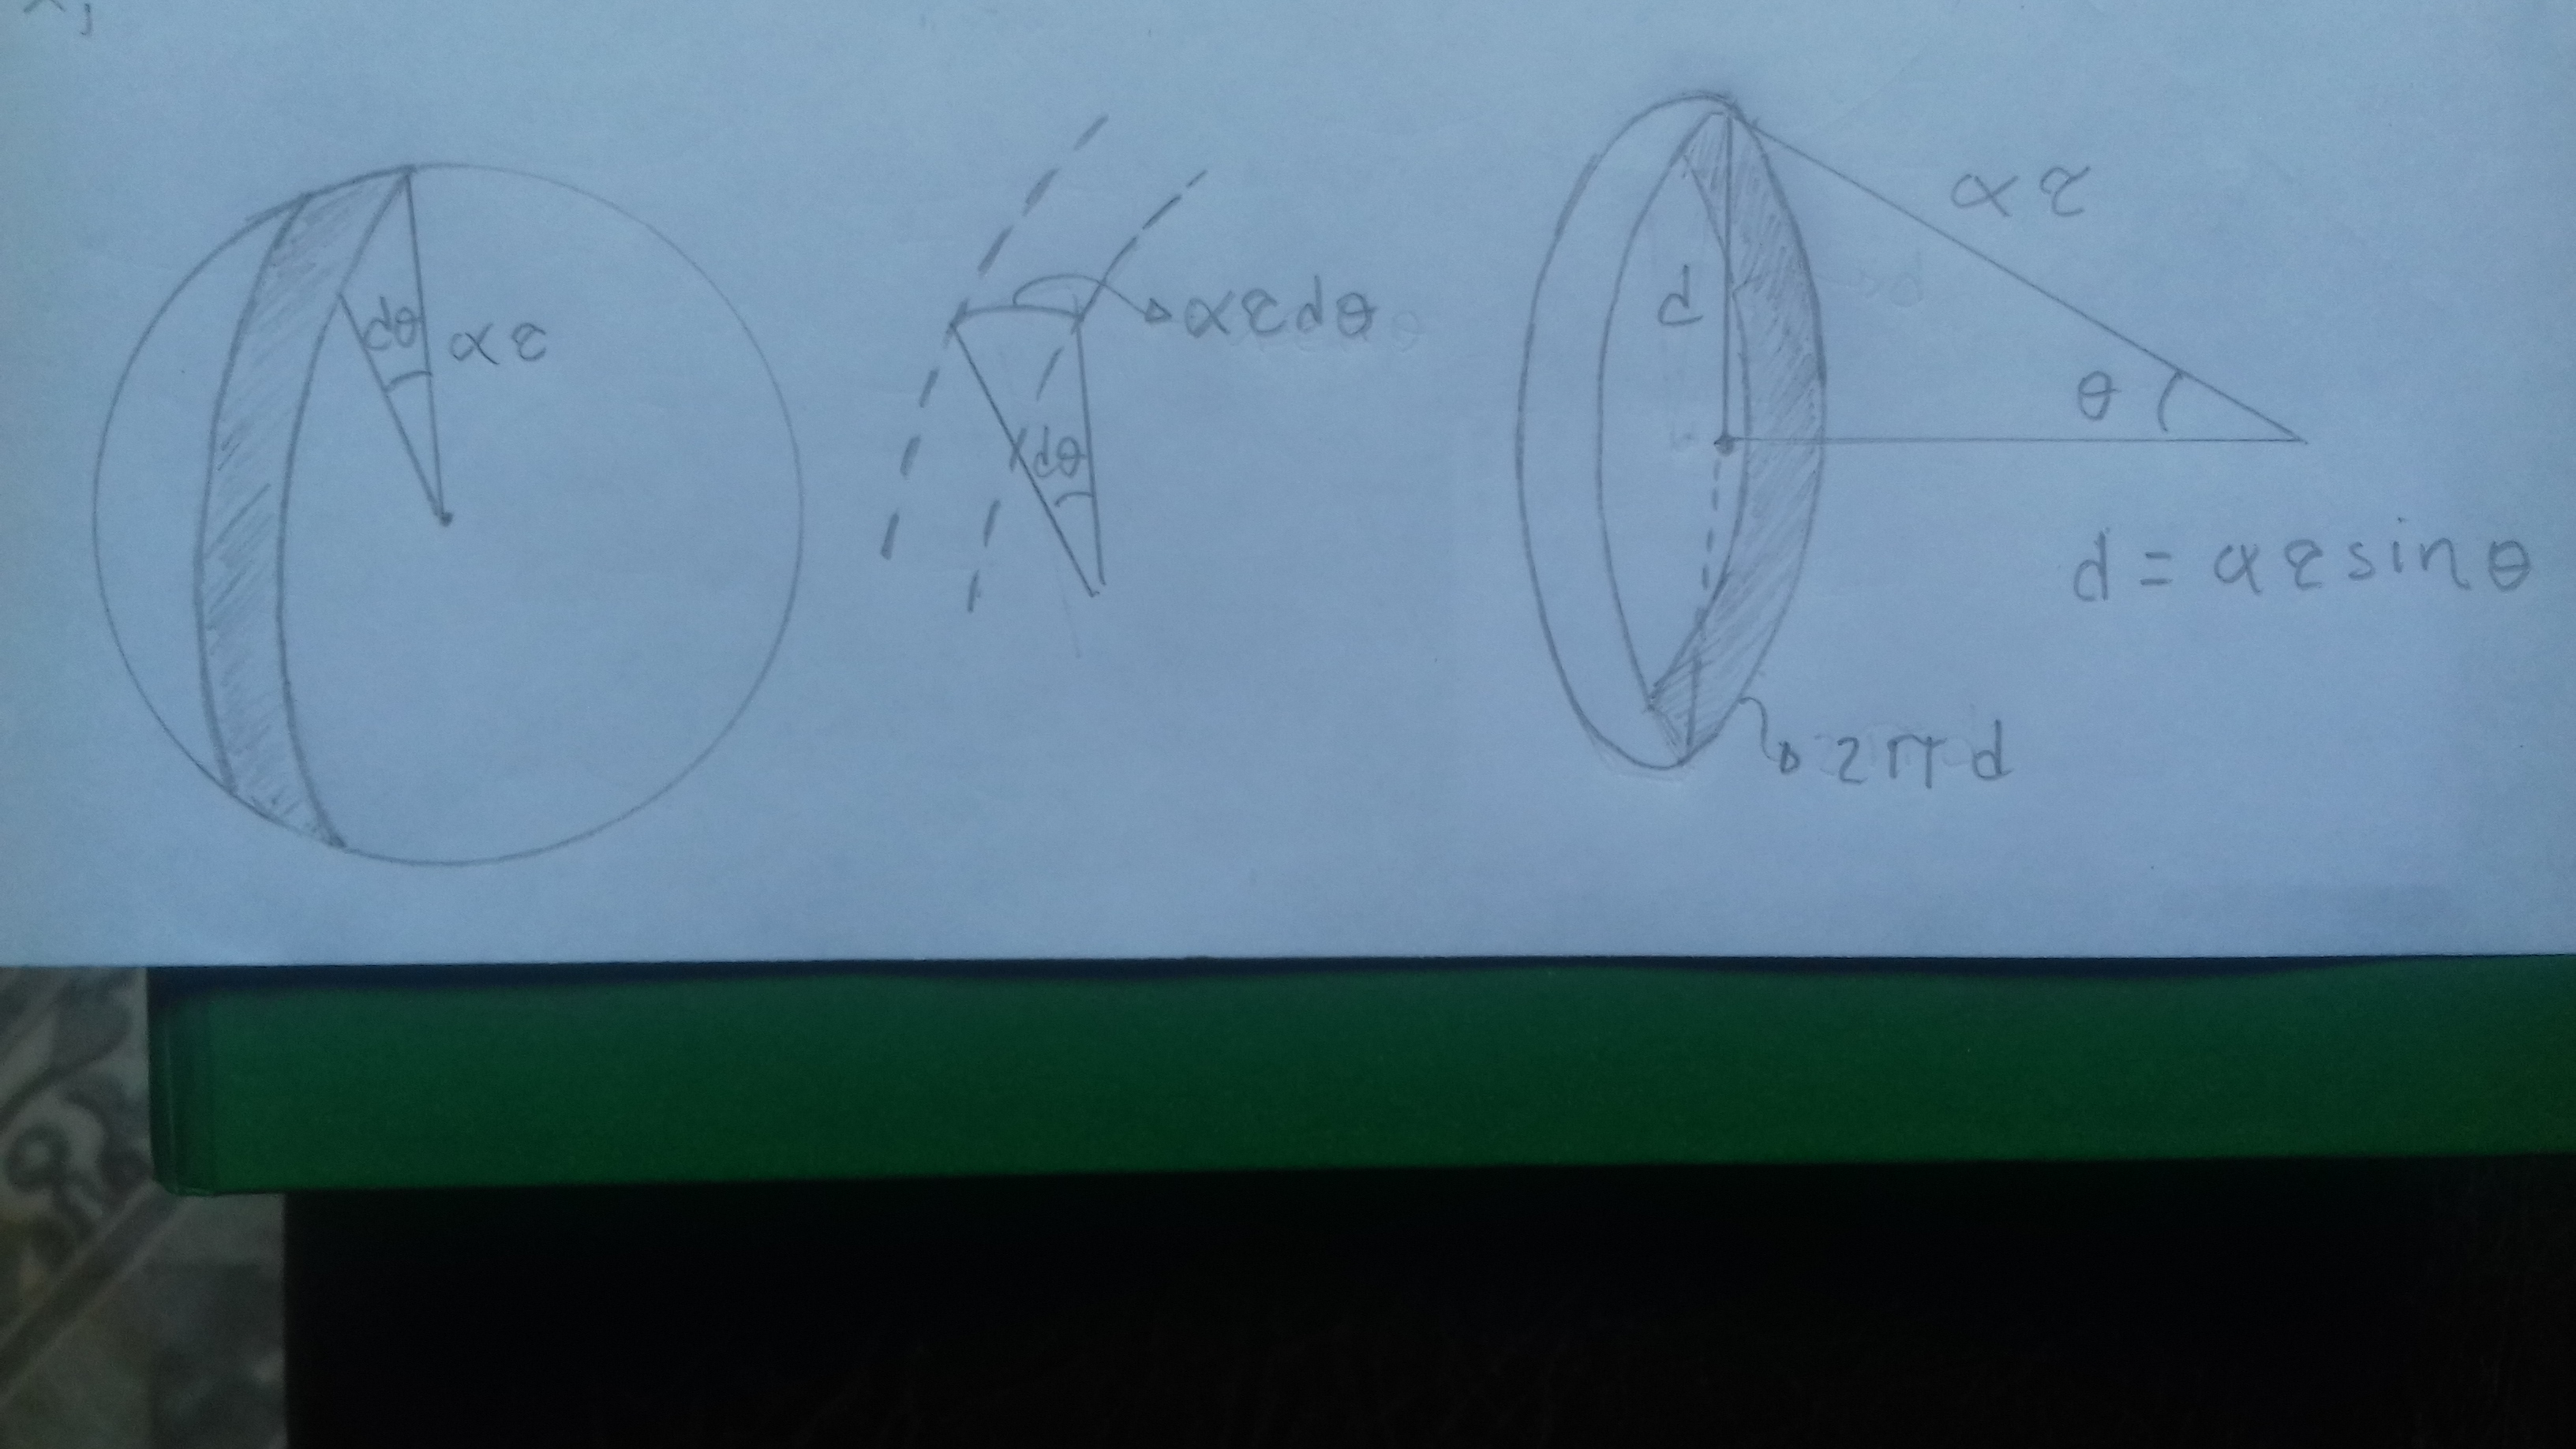 dθ
αε
dθ
αεdθ
d
2πd
αε
θ
d = αε sinθ